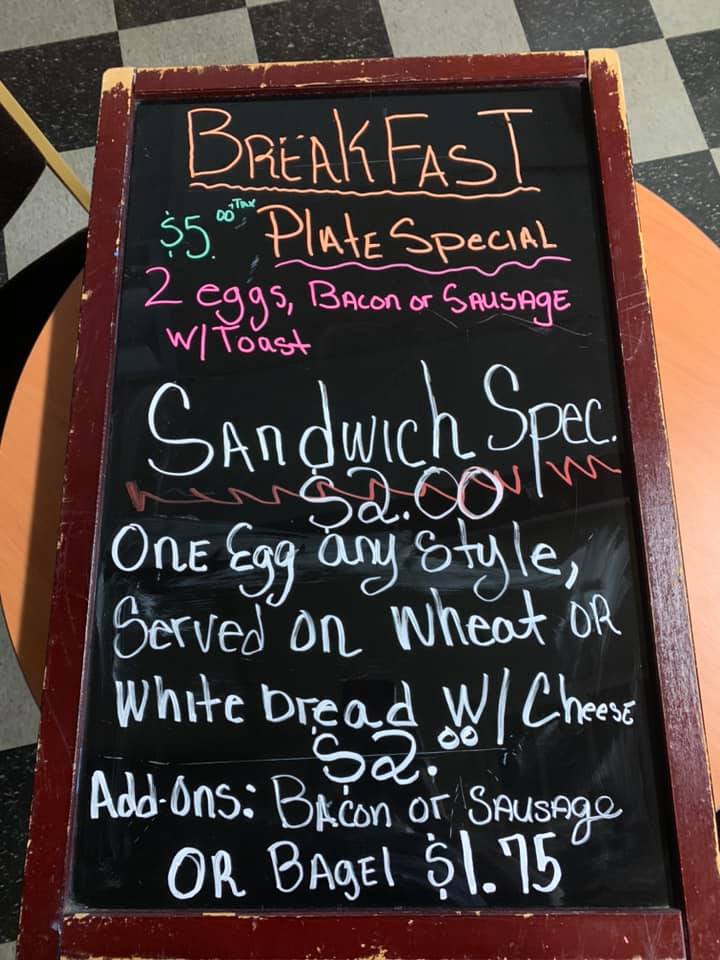 BREAKFAST
$5.00+Tax PLAtE SPECIAL
2 eggs, BACon or SAUSAgE
W/Toast
SAndwich Spec.
$2.00
OnE Egg any Style,
Served on wheat OR
White bread W/CheesE
$2.00
Add-Ons: BACon or SAUSAge
OR BAgEl $1.75